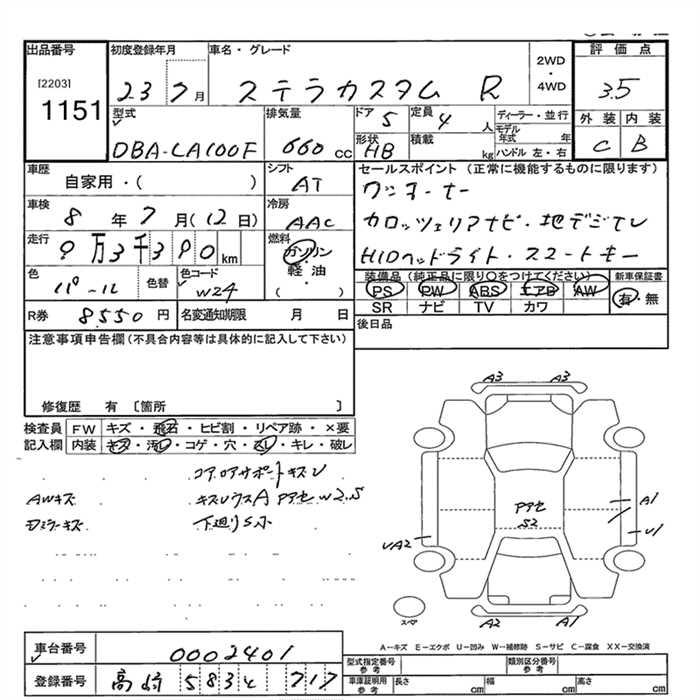 出品番号 初度登録年月 車名・グレード 2WD・4WD 評価点
[2203] 1151 23 7月 ステラカスタム R 3.5
型式 排気量 ドア 定員 ディーラー・並行 外装 内装
DBA-LA100F 660cc 5 4人 モデル年式 年 C B
形状 積載 kg ハンドル 左・右
HB
車歴 シフト セールスポイント(正常に機能するものに限ります)
自家用・( ) AT ワンオーナー
車検 冷房 カロッツェリアナビ・地デジTV
8年7月(12日) AAC HIDヘッドライト・スマートキー
走行 燃料
9万3千390km ガソリン・軽油 ( )
装備品(純正品に限り○をつけてください) 新車保証書
色 色替 色コード PS PW ABS エアB AW 有・無
パール W24 SR ナビ TV カワ
R券 8550円 名変通知期限 月 日 後日品
注意事項申告欄(不具合内容等は具体的に記入して下さい)
修復歴 有 [箇所 ]
検査員記入欄 FW キズ・飛石・ヒビ割・リペア跡・×要
内装 キズ・汚レ・コゲ・穴・スレ・キレ・破レ
コアロアサポートキズU
AWキズ キズUウスA Pアセ W2.5
Dミラーキズ 下廻りS小
A3 A3
A1
Pアセ S2
UA2 U1
A2 A1
スペア
A-キズ E-エクボ U-凹み W-補修跡 S-サビ C-腐食 XX-交換済
車台番号 0002401
型式指定番号 参考 類別区分番号 参考
登録番号 高崎 583 717
車庫証明用 参考 長さ cm 幅 cm 高さ cm